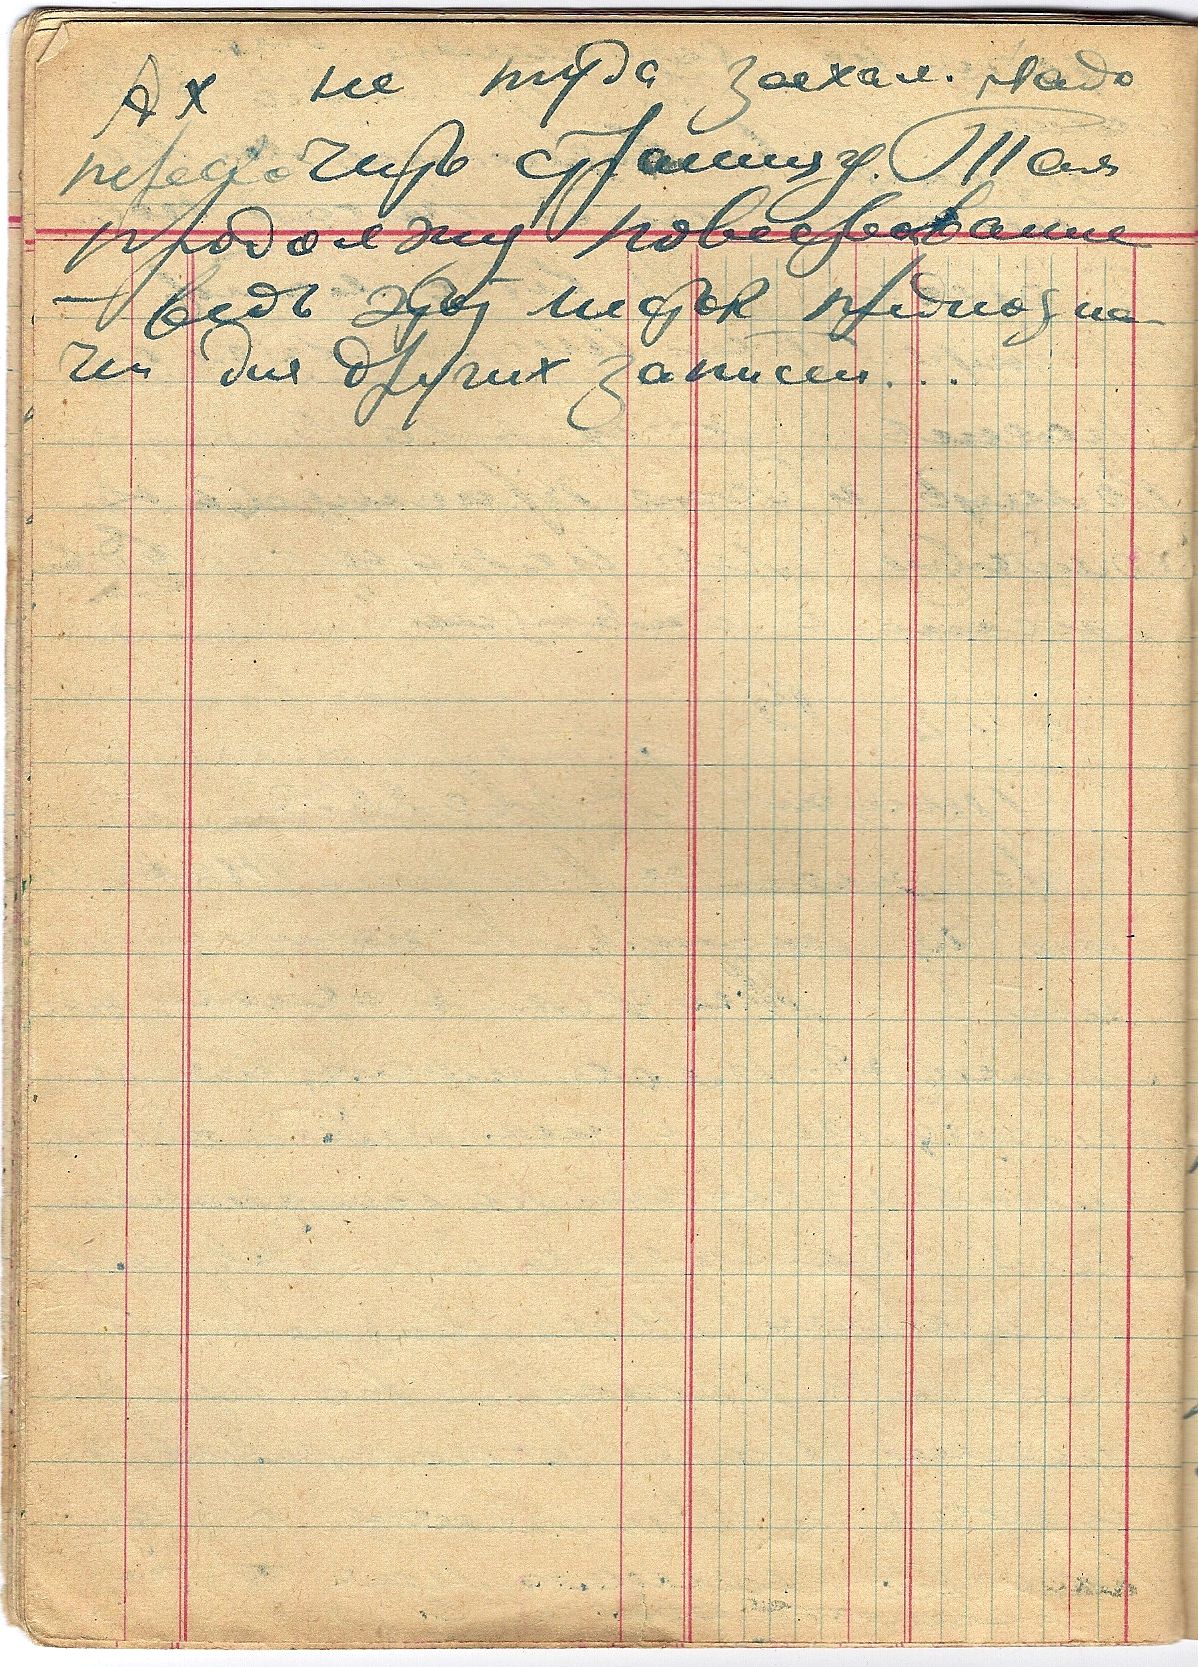 Ах не туда заехал. Надо
перескочить страницу. Там
продолжу повествование
– ведь этот листок предназна
чен для других записей...